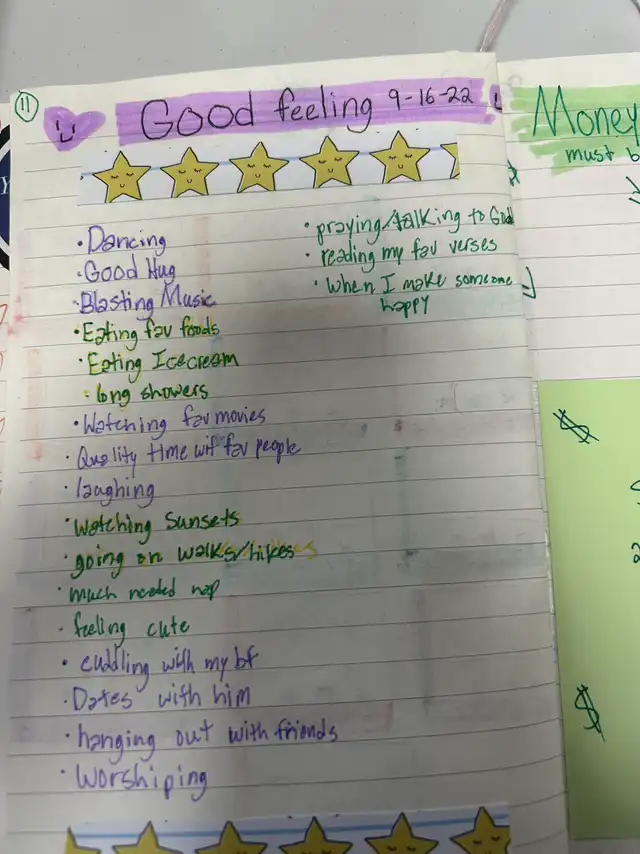 11
Good feeling 9-16-22
• Dancing
• Good Hug
• Blasting Music
• Eating fav foods
• Eating Icecream
• long showers
• Watching fav movies
• Quality time wif fav people
• laughing
• Watching Sunsets
• going on walks/hikes
• much needed nap
• feeling cute
• cuddling with my bf
• Dates with him
• hanging out with friends
• Worshiping
• praying/talking to God
• reading my fav verses
• when I make someone
happy
Money
must b
$
$